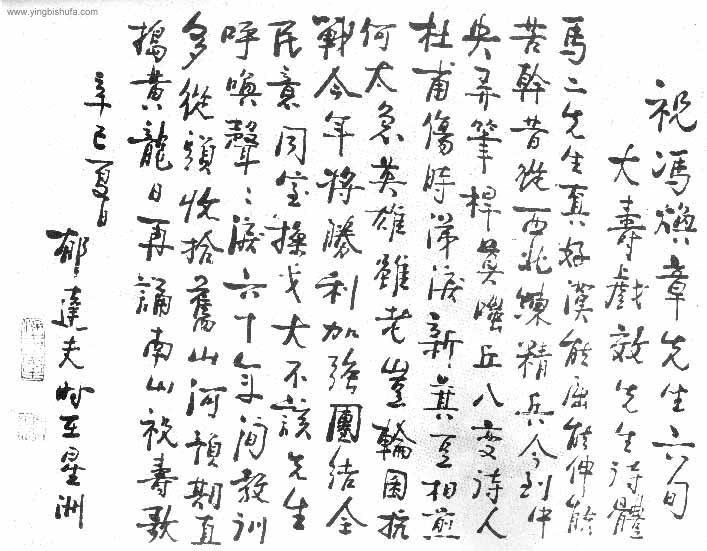 www.yingbishufa.com
祝馮煥章先生六旬
大壽戲效先生詩體
馬二先生真好漢能屈能伸能
苦幹昔從西北練精兵今到中
央弄筆桿莫嗤丘八變詩人
杜甫傷時涕淚新萁豆相煎
何太急英雄雖老豈輪囷抗
戰今年將勝利加強團結全
民意同室操戈大不該先生
呼喚聲〻淚六十年間教訓
多從頭收拾舊山河預期直
搗黃龍日再誦南山祝壽歌
辛巳夏日
郁達夫時在星洲